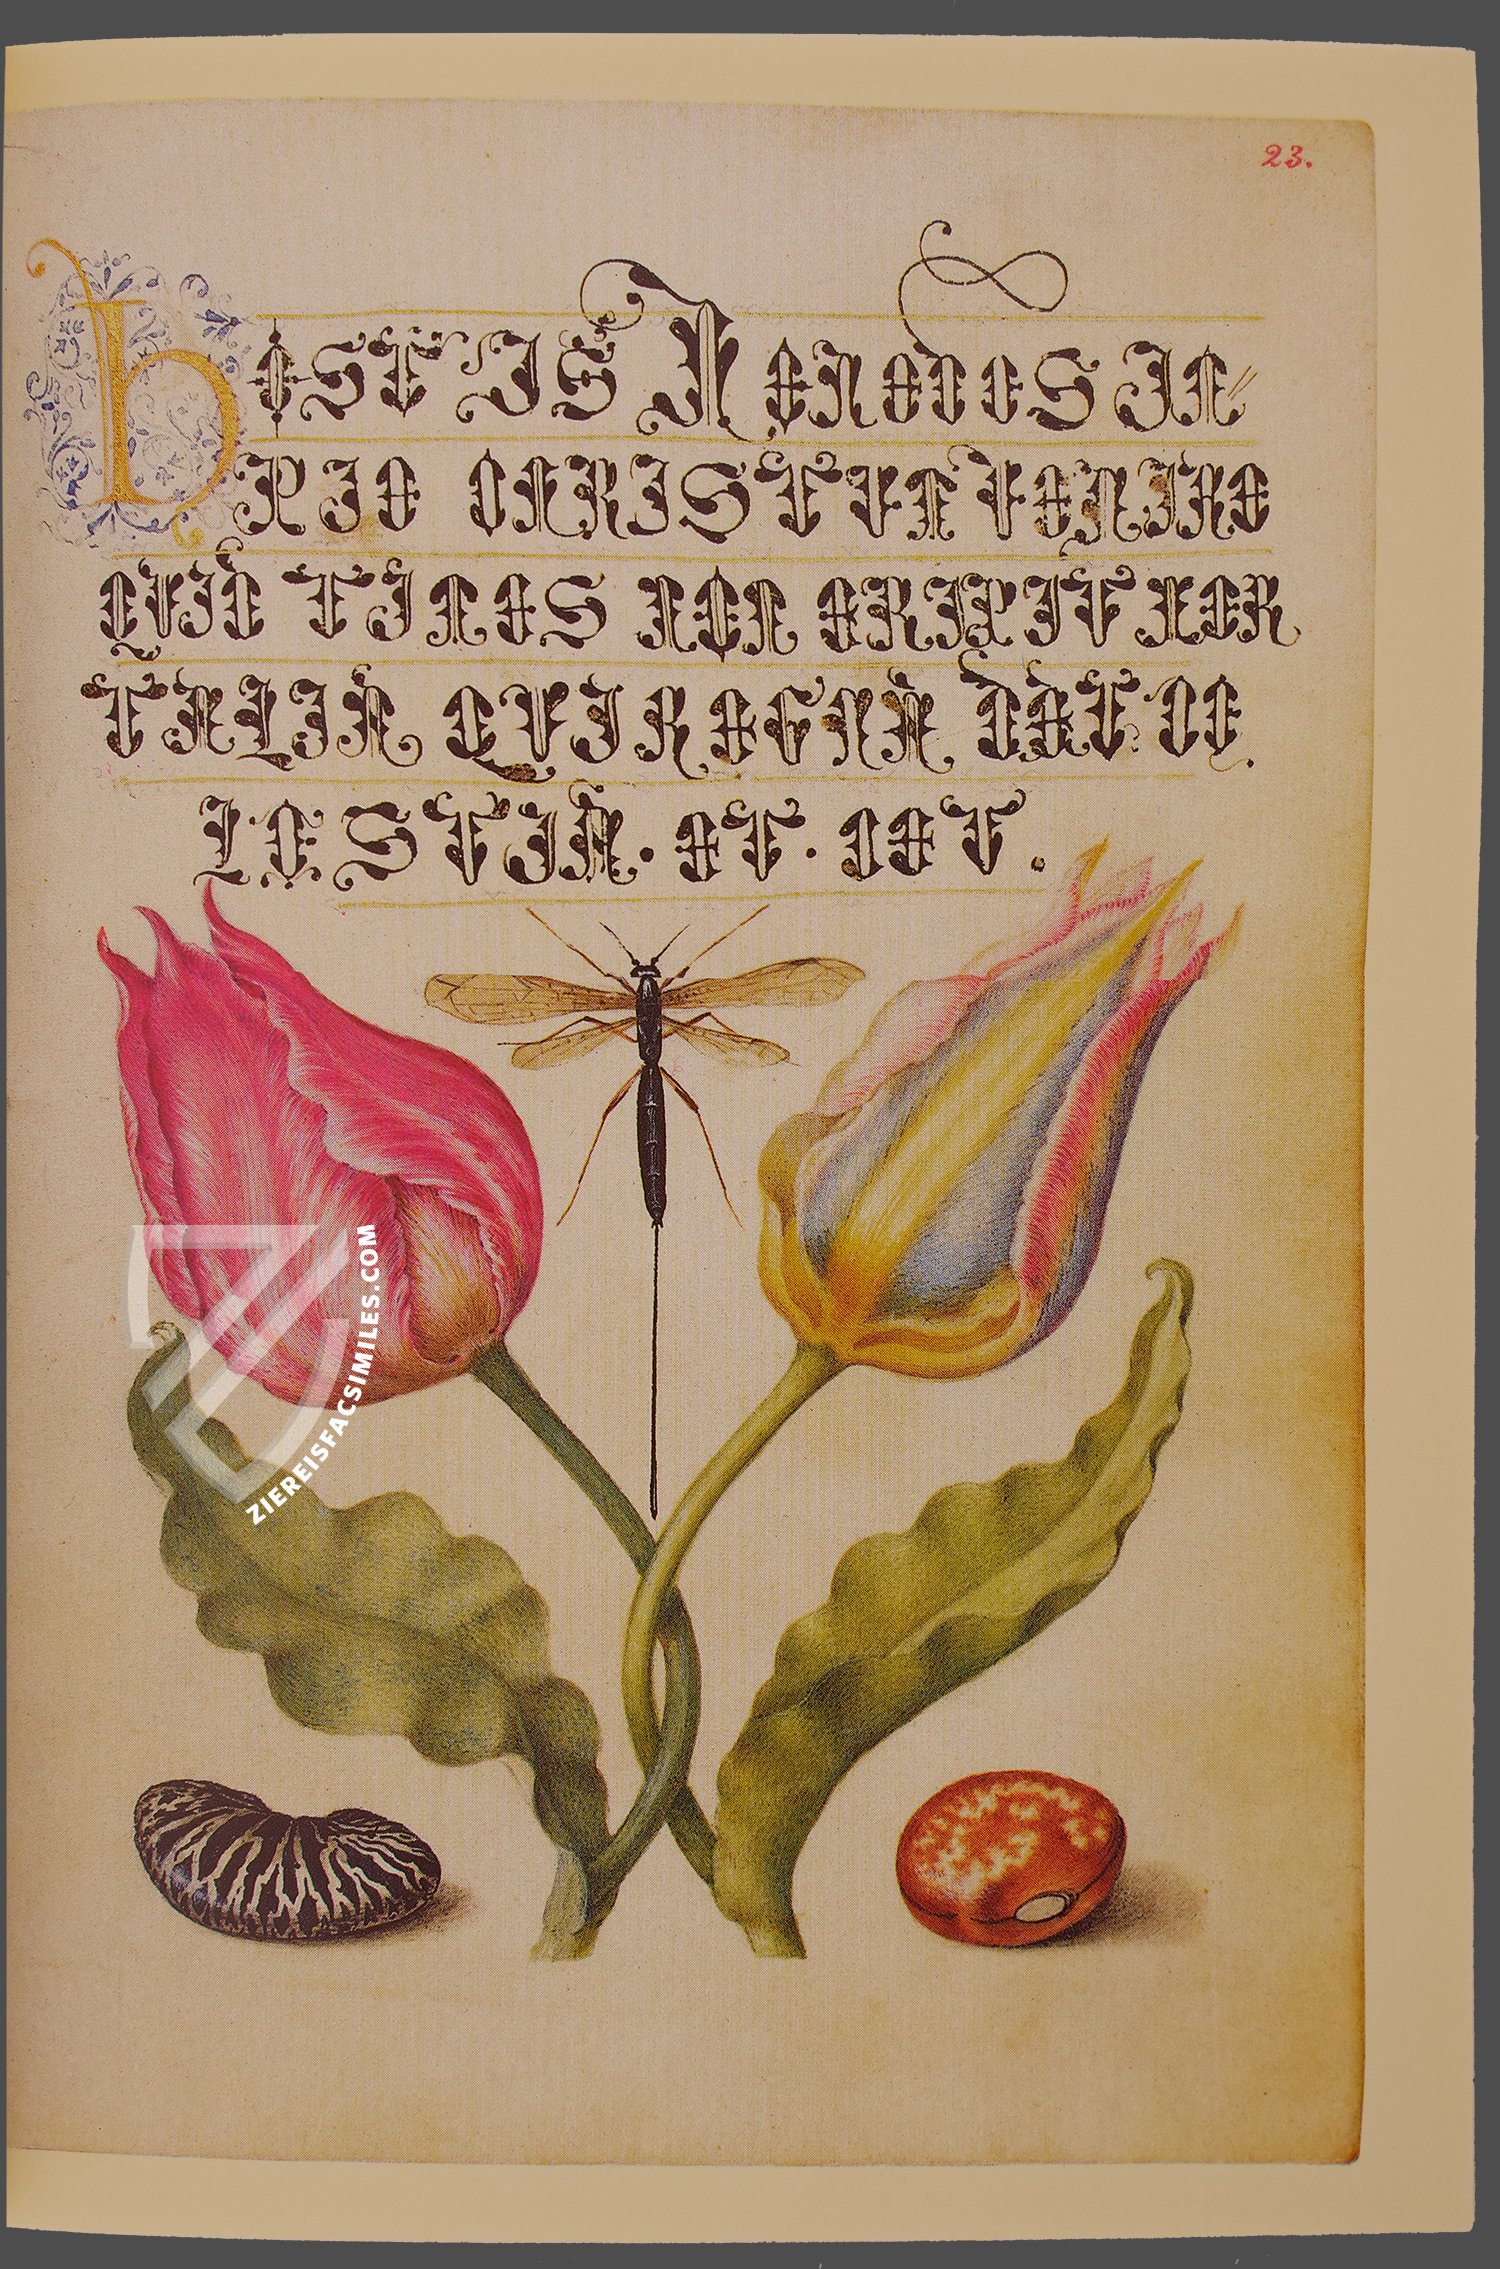 23.
HOSTIS HERODES IM=
PIE CHRISTVM VENIRE
QVID TIMES NON ERIPIT MOR
TALIA QVI REGNA DAT CE
LESTIA. ET. CET.
ZIEREISFACSIMILES.COM